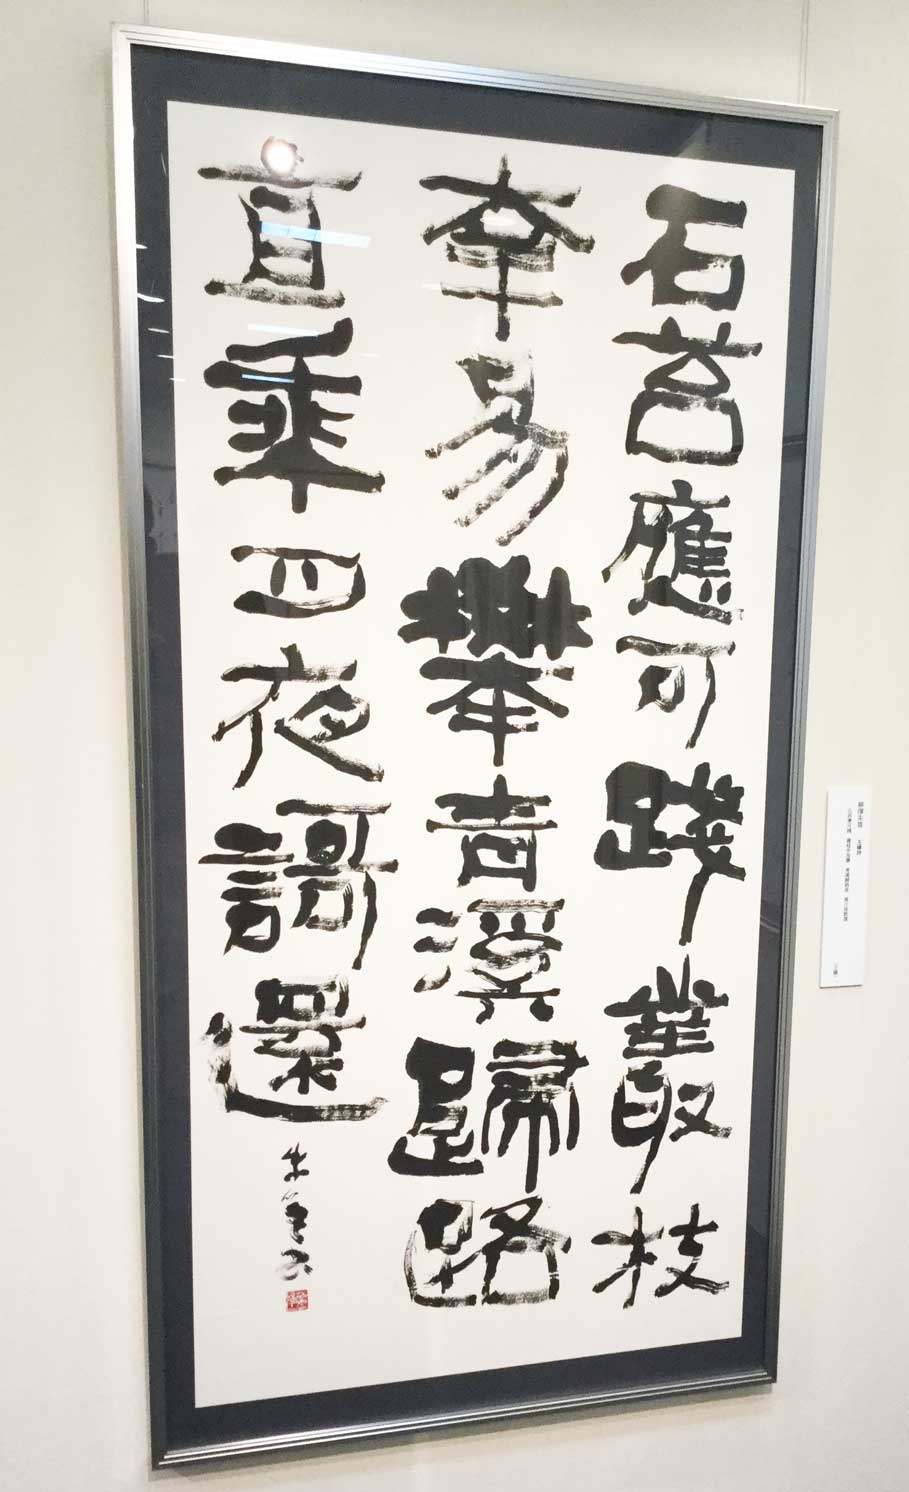 石苔應可踐叢枝
幸易攀青溪歸路
直乘月夜謌還